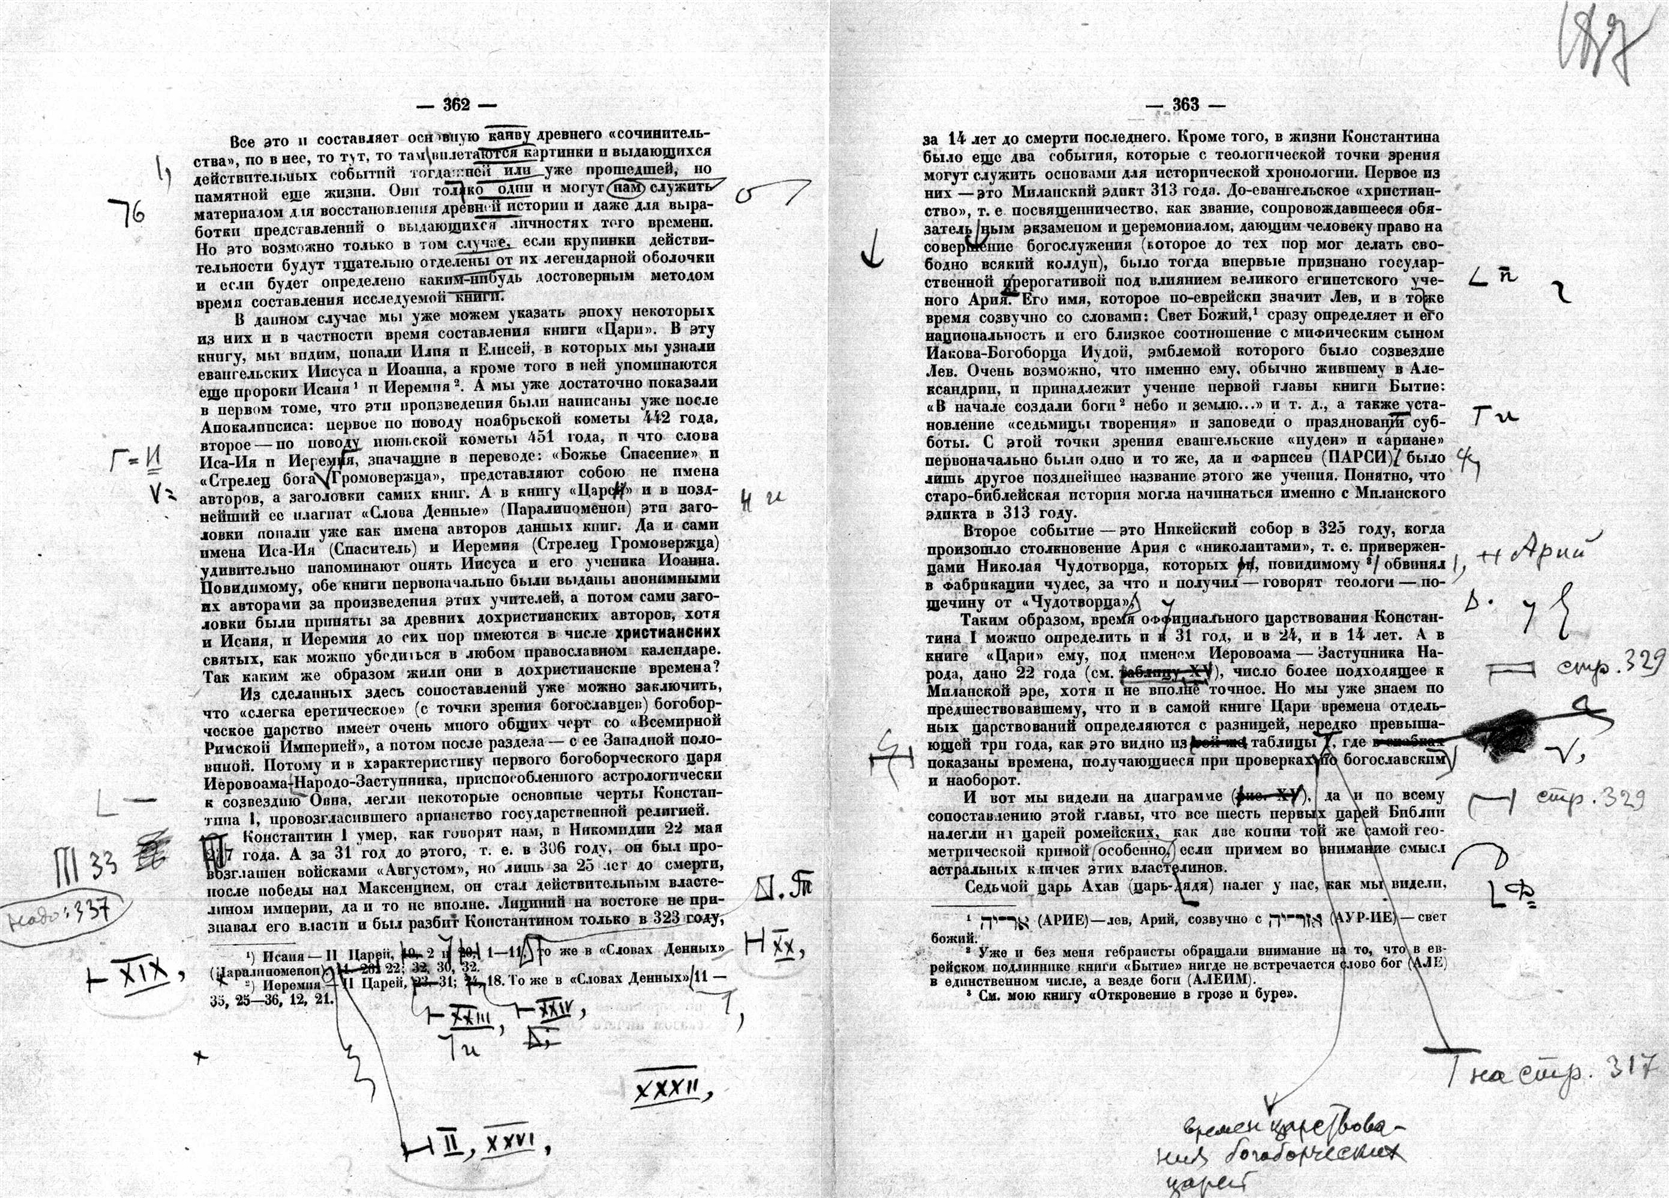 187
— 362 —
Все это и составляет основную канву древнего «сочинитель-
ства», по в нее, то тут, то там вплетаются картинки и выдающихся
действительных событий тогдашней или уже прошедшей, но
памятной еще жизни. Они только одни и могут нам служить
материалом для восстановления древней истории и даже для выра-
ботки представлений о выдающихся личностях того времени.
Но это возможно только в том случае, если крупинки действи-
тельности будут тщательно отделены от их легендарной оболочки
и если будет определено каким-нибудь достоверным методом
время составления исследуемой книги.
В данном случае мы уже можем указать эпоху некоторых
из них и в частности время составления книги «Цари». В эту
книгу, мы видим, попали Илия и Елисей, в которых мы узнали
евангельских Иисуса и Иоанна, а кроме того в ней упоминаются
еще пророки Исаия¹ и Иеремия². А мы уже достаточно показали
в первом томе, что эти произведения были написаны уже после
Апокалипсиса: первое по поводу ноябрьской кометы 442 года,
второе — по поводу июньской кометы 451 года, и что слова
Иса-Ия и Иеремия, значащие в переводе: «Божье Спасение» и
«Стрелец бога Громовержца», представляют собою не имена
авторов, а заголовки самих книг. А в книгу «Царей» и в позд-
нейший ее плагиат «Слова Денные» (Паралипоменон) эти заго-
ловки попали уже как имена авторов данных книг. Да и сами
имена Иса-Ия (Спаситель) и Иеремия (Стрелец Громовержца)
удивительно напоминают опять Иисуса и его ученика Иоанна.
Повидимому, обе книги первоначально были выданы анонимными
их авторами за произведения этих учителей, а потом сами заго-
ловки были приняты за древних дохристианских авторов, хотя
и Исаия, и Иеремия до сих пор имеются в числе христианских
святых, как можно убедиться в любом православном календаре.
Так каким же образом жили они в дохристианские времена?
Из сделанных здесь сопоставлений уже можно заключить,
что «слегка еретическое» (с точки зрения богославцев) богобор-
ческое царство имеет очень много общих черт со «Всемирной
Римской Империей», а потом после раздела — с ее Западной поло-
виной. Потому и в характеристику первого богоборческого царя
Иеровоама-Народо-Заступника, приспособленного астрологически
к созвездию Овна, легли некоторые основные черты Констан-
тина I, провозгласившего арианство государственной религией.
Константин I умер, как говорят нам, в Никомидии 22 мая
года. А за 31 год до этого, т. е. в 306 году, он был про-
возглашен войсками «Августом», но лишь за 25 лет до смерти,
после победы над Максенцием, он стал действительным власте-
лином империи, да и то не вполне. Лициний на востоке не при-
знавал его власти и был разбит Константином только в 323 году,
¹) Исаия — II Царей, 19, 2 и 20, 1—11, то же в «Словах Денных»
(Паралипоменон), 22; 32, 30, 32.
²) Иеремия — II Царей, 23—31; 24, 18. То же в «Словах Денных» 11 —
35, 25—36, 12, 21.
76
Г = И
V =
н и
33
Надо: 337
XIX,
XX,
XXIII, XXIV,
XXXII,
II, XXVI,
— 363 —
за 14 лет до смерти последнего. Кроме того, в жизни Константина
было еще два события, которые с теологической точки зрения
могут служить основами для исторической хронологии. Первое из
них — это Миланский эдикт 313 года. До-евангельское «христиан-
ство», т. е. посвященничество, как звание, сопровождавшееся обя-
зательным экзаменом и церемониалом, дающим человеку право на
совершение богослужения (которое до тех пор мог делать сво-
бодно всякий колдун), было тогда впервые признано государ-
ственной прерогативой под влиянием великого египетского уче-
ного Ария. Его имя, которое по-еврейски значит Лев, и в тоже
время созвучно со словами: Свет Божий,¹ сразу определяет и его
национальность и его близкое соотношение с мифическим сыном
Иакова-Богоборца Иудой, эмблемой которого было созвездие
Лев. Очень возможно, что именно ему, обычно жившему в Але-
ксандрии, и принадлежит учение первой главы книги Бытие:
«В начале создали боги² небо и землю...» и т. д., а также уста-
новление «седьмицы творения» и заповеди о праздновании суб-
боты. С этой точки зрения евангельские «иудеи» и «ариане»
первоначально были одно и то же, да и фарисеи (ПАРСИ) было
лишь другое позднейшее название этого же учения. Понятно, что
старо-библейская история могла начинаться именно с Миланского
эдикта в 313 году.
Второе событие — это Никейский собор в 325 году, когда
произошло столкновение Ария с «николаитами», т. е. привержен-
цами Николая Чудотворца, которых он, повидимому ³/ обвинял
в фабрикации чудес, за что и получил — говорят теологи — по-
щечину от «Чудотворца».
Таким образом, время официального царствования Констан-
тина I можно определить и в 31 год, и в 24, и в 14 лет. А в
книге «Цари» ему, под именем Иеровоама — Заступника На-
рода, дано 22 года (см. таблицу XV), число более подходящее к
Миланской эре, хотя и не вполне точное. Но мы уже знаем по
предшествовавшему, что и в самой книге Цари времена отдель-
ных царствований определяются с разницей, нередко превыша-
ющей три года, как это видно из той же таблицы, где в скобках
показаны времена, получающиеся при проверках по богославским
и наоборот.
И вот мы видели на диаграмме (рис. XV), да и по всему
сопоставлению этой главы, что все шесть первых царей Библии
налегли на царей ромейских, как две копии той же самой гео-
метрической кривой особенно, если примем во внимание смысл
астральных кличек этих властелинов.
Седьмой царь Ахав (царь-дядя) налег у нас, как мы видели,
¹ אריה (АРИЕ)—лев, Арий, созвучно с אוריה (АУР-ИЕ)—свет
божий.
² Уже и без меня гебраисты обращали внимание на то, что в ев-
рейском подлиннике книги «Бытие» нигде не встречается слово бог (АЛЕ)
в единственном числе, а везде боги (АЛЕИМ).
³ См. мою книгу «Откровение в грозе и буре».
Арий
стр. 329
стр. 329
на стр. 317
времен царствова-
ния богоборческих
царей